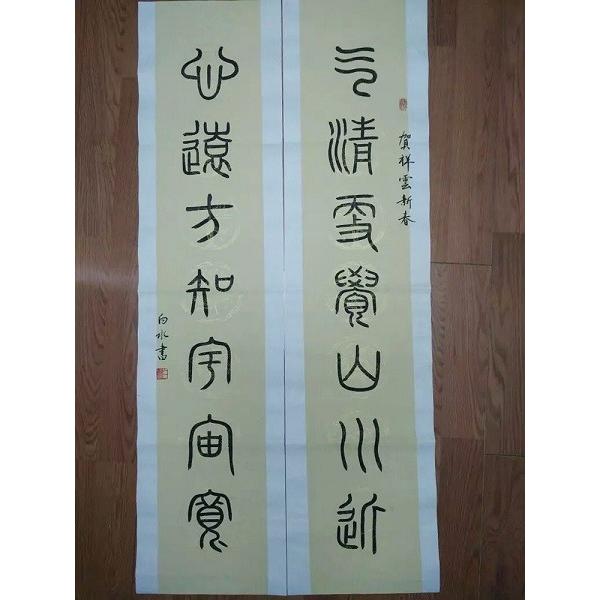 賀祥雲新春
气清更覺山川近
心遠方知宇宙寬
白水書